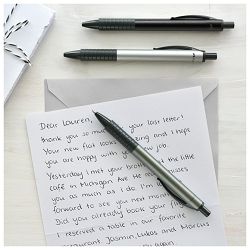 Dear Lauren,
thank you so much for your last letter!
Your new flat looks amazing and I hope
you are happy with your new job.
Yesterday I met your brother at the little
café in Michigan Ave. He
you as much as I do. I'm
forward to see you next month
Did you already book your flight
I reserved a table in our favorite
restaurant. Jasmin, Lukas and Marcus